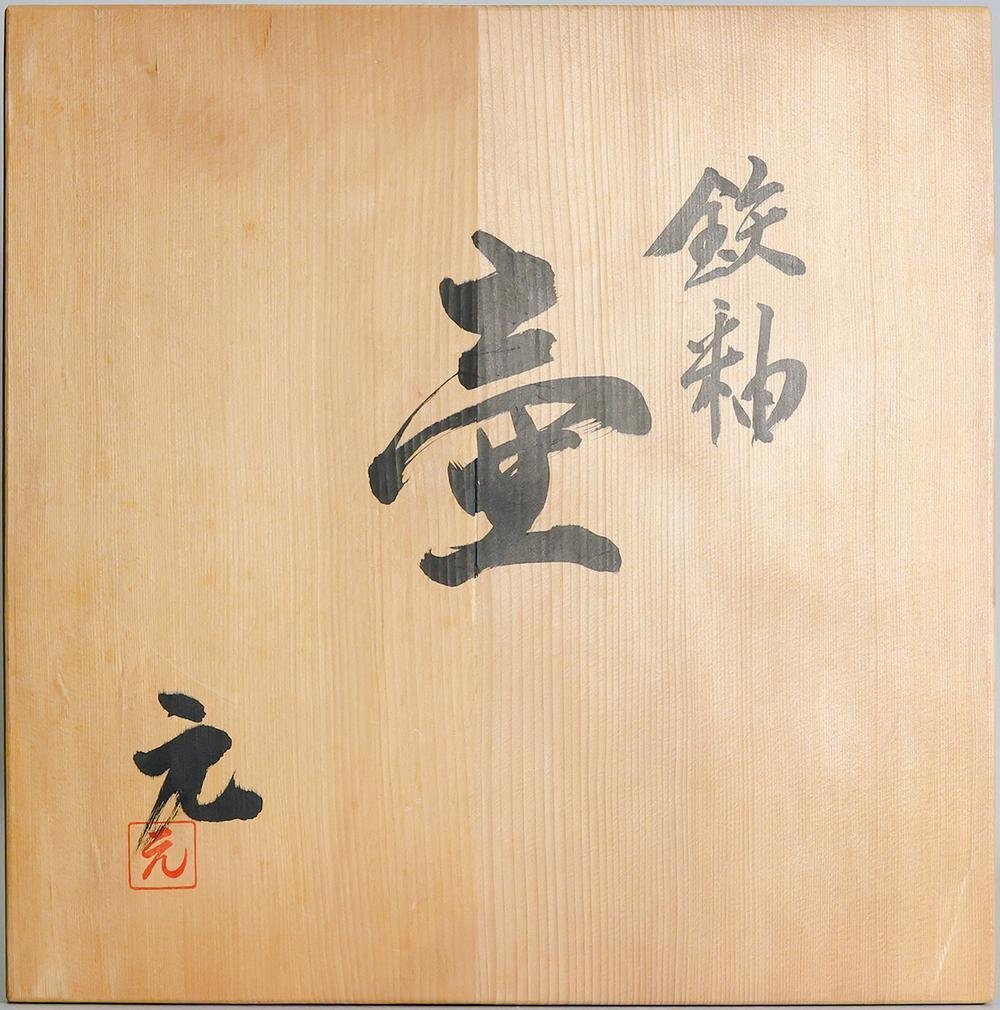 鉄釉
壷
元
元